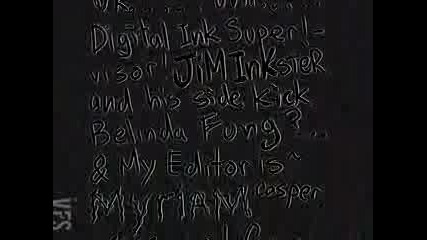 Digital Ink Superl-
visor! JiM INKsteR
and his side kick
Belinda Fung?...
& My Editor is~
MyriAM "casper
VFS